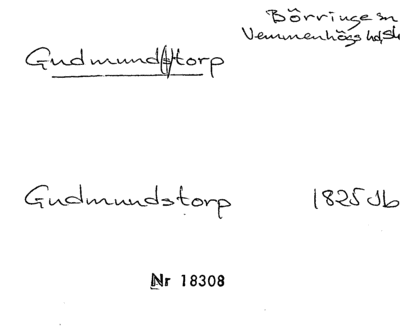 Börringe sn
Vemmenhögs hd, Sk
Gudmund(s)torp
Gudmundstorp 1825 Jb
Nr 18308